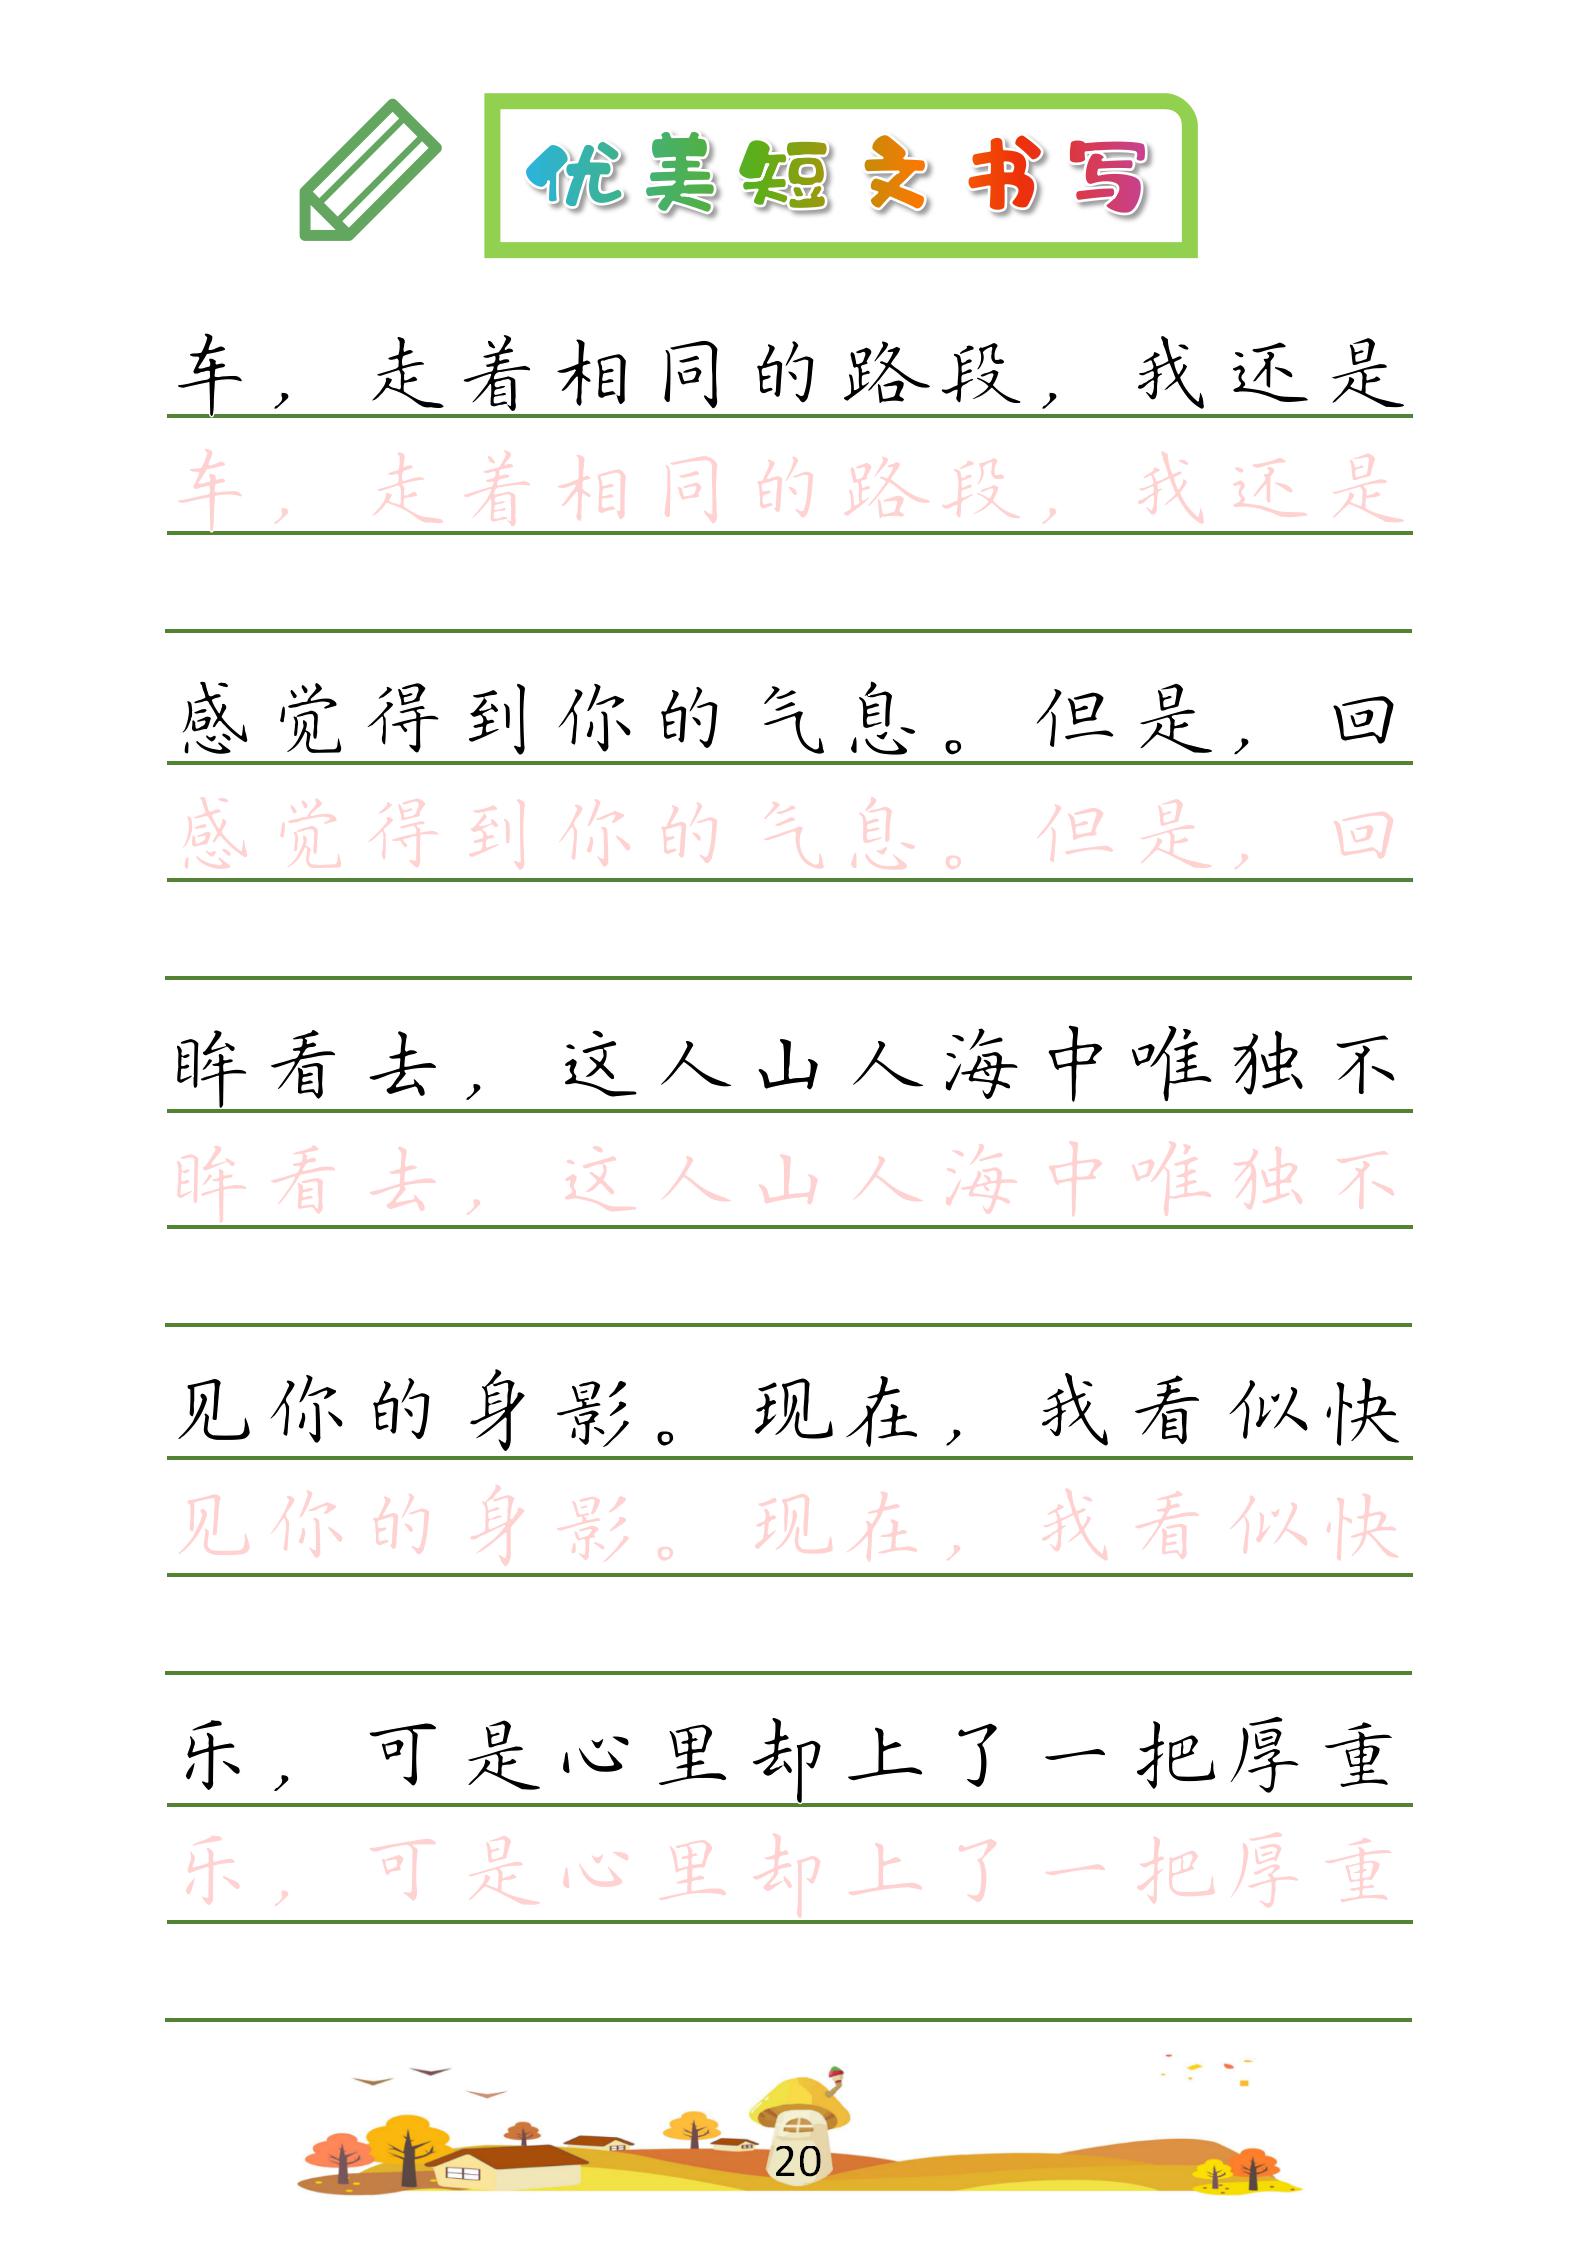 优美短文书写
车，走着相同的路段，我还是
车，走着相同的路段，我还是
感觉得到你的气息。但是，回
感觉得到你的气息。但是，回
眸看去，这人山人海中唯独不
眸看去，这人山人海中唯独不
见你的身影。现在，我看似快
见你的身影。现在，我看似快
乐，可是心里却上了一把厚重
乐，可是心里却上了一把厚重
20